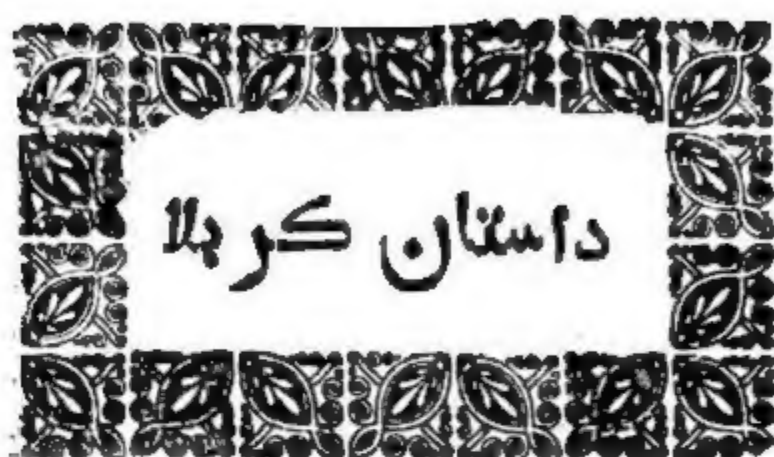 داستان کربلا